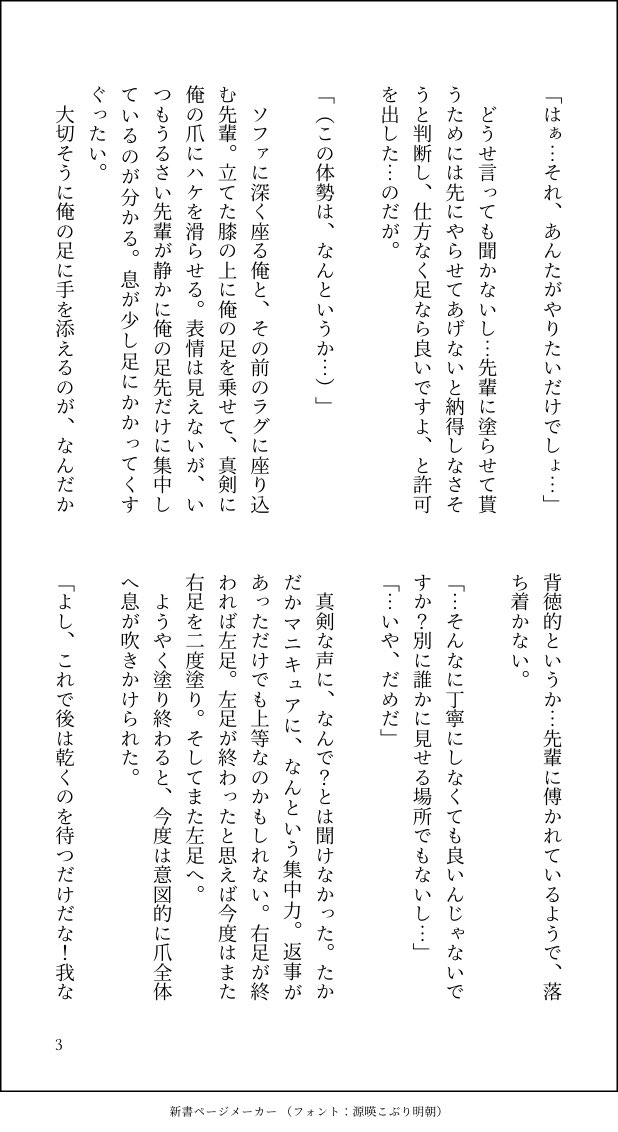 「はぁ…それ、あんたがやりたいだけでしょ…」
どうせ言っても聞かないし…先輩に塗らせて貰
うためには先にやらせてあげないと納得しなさそ
うと判断し、仕方なく足なら良いですよ、と許可
を出した…のだが。
「（この体勢は、なんというか…）」
ソファに深く座る俺と、その前のラグに座り込
む先輩。立てた膝の上に俺の足を乗せて、真剣に
俺の爪にハケを滑らせる。表情は見えないが、い
つもうるさい先輩が静かに俺の足先だけに集中し
ているのが分かる。息が少し足にかかってくす
ぐったい。
大切そうに俺の足に手を添えるのが、なんだか
背徳的というか…先輩に傅かれているようで、落
ち着かない。
「…そんなに丁寧にしなくても良いんじゃないで
すか？別に誰かに見せる場所でもないし…」
「…いや、だめだ」
真剣な声に、なんで？とは聞けなかった。たか
だかマニキュアに、なんという集中力。返事が
あっただけでも上等なのかもしれない。右足が終
われば左足。左足が終わったと思えば今度はまた
右足を二度塗り。そしてまた左足へ。
ようやく塗り終わると、今度は意図的に爪全体
へ息が吹きかけられた。
「よし、これで後は乾くのを待つだけだな！我な
3
新書ページメーカー（フォント：源暎こぶり明朝）